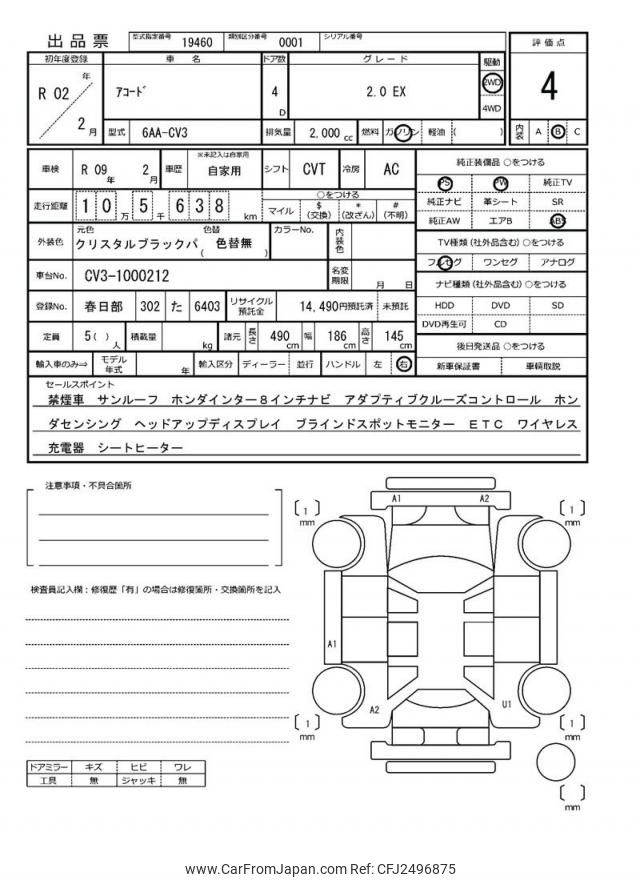 出品票 型式指定番号 19460 類別区分番号 0001 シリアル番号
初年度登録 車 名 ドア数 グレード 駆動 評価点
R 02 年 2 月 ｱｺｰﾄﾞ 4 D 2.0 EX 2WD 4WD 4
型式 6AA-CV3 排気量 2,000 cc 燃料 ガソリン 軽油 ( ) 内装 A B C
車検 R 09 年 2 月 車歴 ※未記入は自家用 自家用 シフト CVT 冷房 AC 純正装備品 ○をつける
PS PW 純正TV
走行距離 1 0 万 5 千 6 3 8 km ○をつける
マイル $ (交換) * (改ざん) # (不明)
純正ナビ 革シート SR
純正AW エアB ABS
外装色 元色 クリスタルブラックパ 色替 ( 色替無 ) カラーNo. 内装色
TV種類 (社外品含む) ○をつける
フルセグ ワンセグ アナログ
車台No. CV3-1000212 名変期限 月 日
ナビ種類 (社外品含む) ○をつける
登録No. 春日部 302 た 6403 リサイクル預託金 14,490円預託済 未預託
HDD DVD SD
DVD再生可 CD
定員 5 ( ) 人 積載量 kg 諸元 長さ 490 cm 幅 186 cm 高さ 145 cm
後日発送品 ○をつける
輸入車のみ⇒ モデル年式 年 輸入区分 ディーラー 並行 ハンドル 左 右
新車保証書 車輌取説
セールスポイント
禁煙車 サンルーフ ホンダインター８インチナビ アダプティブクルーズコントロール ホン
ダセンシング ヘッドアップディスプレイ ブラインドスポットモニター ＥＴＣ ワイヤレス
充電器 シートヒーター
注意事項・不具合箇所
検査員記入欄：修復歴「有」の場合は修復箇所・交換箇所を記入
ドアミラー キズ ヒビ ワレ
工具 無 ジャッキ 無
A1 A2
( 1 ) mm ( 1 ) mm
A1
A2 U1
( 1 ) mm ( 1 ) mm
( ) mm
www.CarFromJapan.com Ref: CFJ2496875